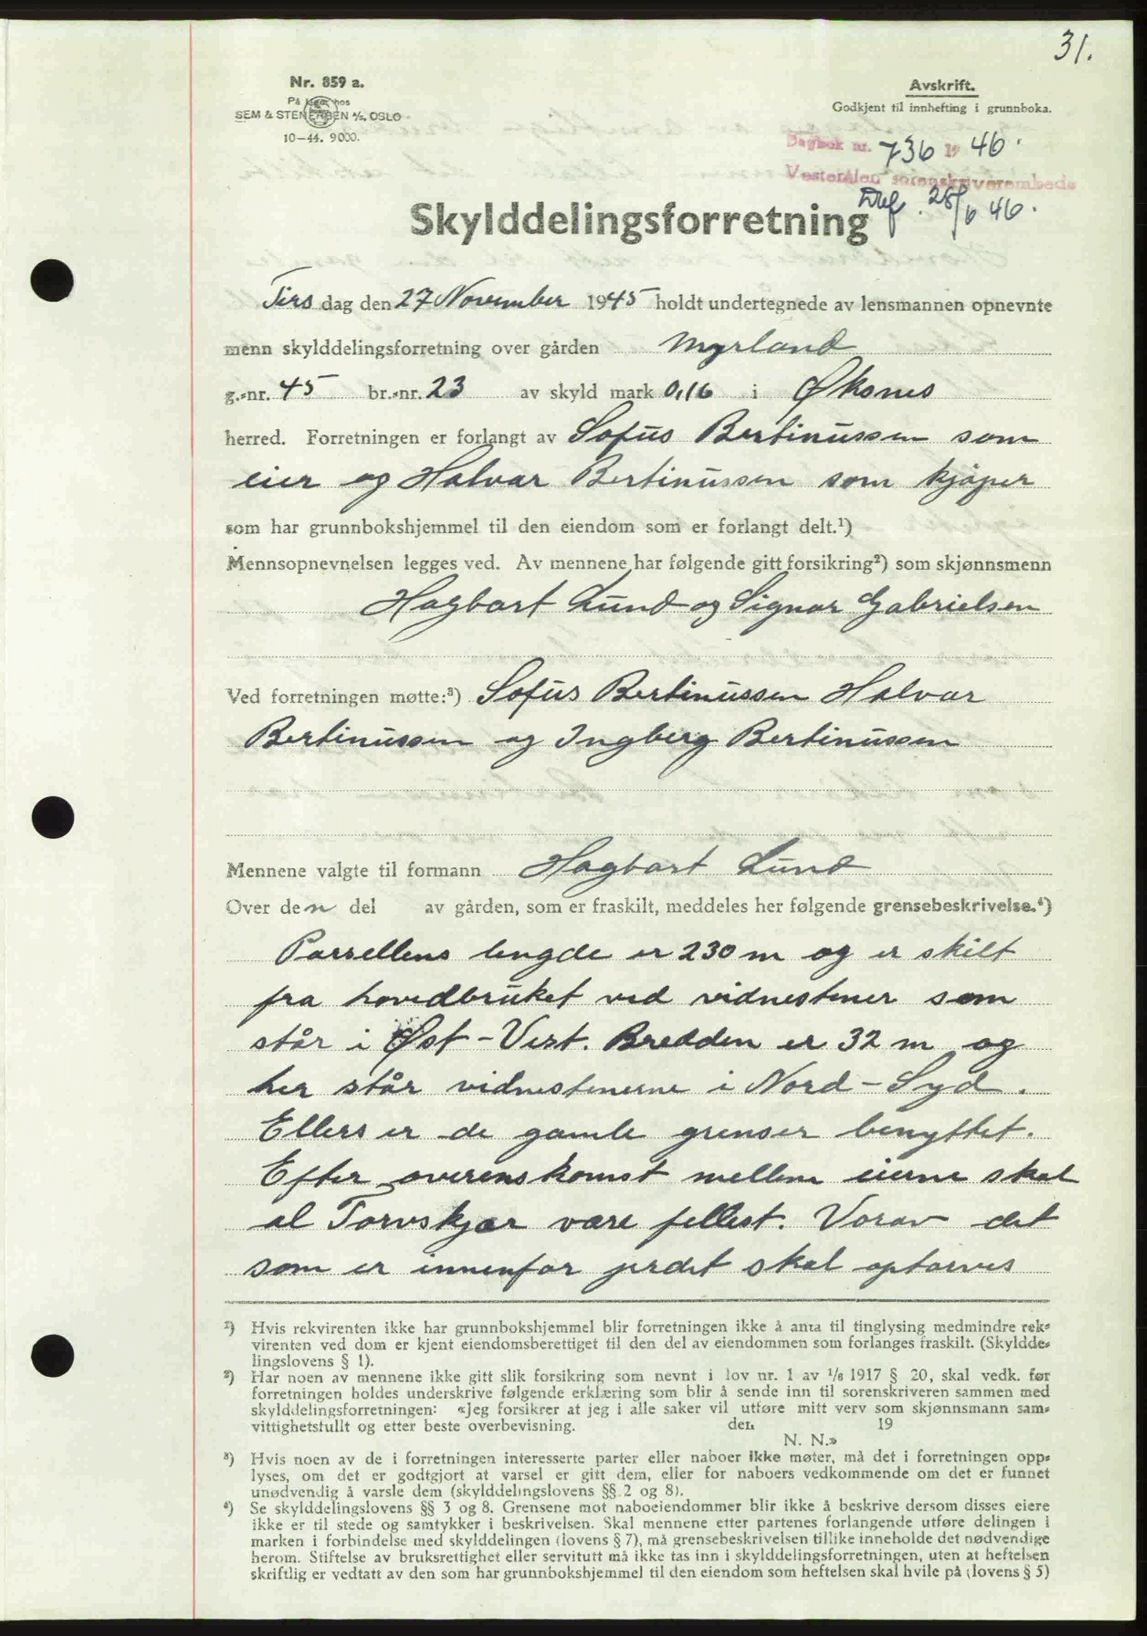 31.
Nr. 859 a.
På lager hos
SEM & STENERSEN A/S, OSLO
10-44. 9000.
Avskrift.
Godkjent til innhefting i grunnboka.
Dagbok nr. 736 19 46.
Vesterålen sorenskriverembede
28/6 46.
Skylddelingsforretning
Tirs dag den 27 November 1945 holdt undertegnede av lensmannen opnevnte
menn skylddelingsforretning over gården Myrland
g.-nr. 45 br.-nr. 23 av skyld mark 0,16 i Øksnes
herred. Forretningen er forlangt av Sofus Bertinussen som
eier og Halvar Bertinussen som kjøper
som har grunnbokshjemmel til den eiendom som er forlangt delt.¹)
Mennsopnevnelsen legges ved. Av mennene har følgende gitt forsikring²) som skjønnsmenn
Hagbart Lund og Signar Gabrielsen
Ved forretningen møtte:³) Sofus Bertinussen Halvar
Bertinussen og Ingberg Bertinussen
Mennene valgte til formann Hagbart Lund
Over den del av gården, som er fraskilt, meddeles her følgende grensebeskrivelse.⁴)
Parsellens lengde er 230 m og er skilt
fra hovedbruket ved vidnestener som
står i Øst - Vest. Bredden er 32 m og
her står vidnestenerne i Nord - Syd.
Ellers er de gamle grenser benyttet.
Efter overenskomst mellem eierne skal
al Torvskjær være felles. Vorav det
som er innenfor jerdet skal optorves
¹) Hvis rekvirenten ikke har grunnbokshjemmel blir forretningen ikke å anta til tinglysing medmindre rek-
virenten ved dom er kjent eiendomsberettiget til den del av eiendommen som forlanges fraskilt. (Skyldde-
lingslovens § 1).
²) Har noen av mennene ikke gitt slik forsikring som nevnt i lov nr. 1 av 1/6 1917 § 20, skal vedk. før
forretningen holdes underskrive følgende erklæring som blir å sende inn til sorenskriveren sammen med
skylddelingsforretningen: «Jeg forsikrer at jeg i alle saker vil utføre mitt verv som skjønnsmann sam-
vittighetsfullt og etter beste overbevisning. den 19
N. N.»
³) Hvis noen av de i forretningen interesserte parter eller naboer ikke møter, må det i forretningen opp-
lyses, om det er godtgjort at varsel er gitt dem, eller for naboers vedkommende om det er funnet
unødvendig å varsle dem (skylddelingslovens §§ 2 og 8).
⁴) Se skylddelingslovens §§ 3 og 8. Grensene mot naboeiendommer blir ikke å beskrive dersom disses eiere
ikke er til stede og samtykker i beskrivelsen. Skal mennene etter partenes forlangende utføre delingen i
marken i forbindelse med skylddelingen (lovens § 7), må grensebeskrivelsen tillike inneholde det nødvendige
herom. Stiftelse av bruksrettighet eller servitutt må ikke tas inn i skylddelingsforretningen, uten at heftelsen
skriftlig er vedtatt av den som har grunnbokshjemmel til den eiendom som heftelsen skal hvile på (lovens § 5)